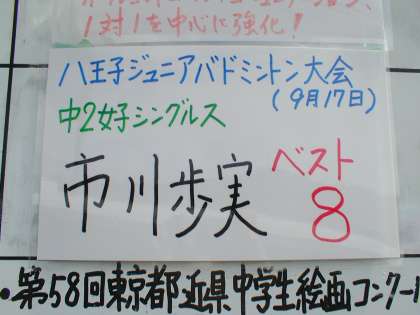 1対1を中心に強化!
八王子ジュニアバドミントン大会
(9月17日)
中2女子シングルス
市川歩実 ベスト8
・第58回東京都近県中学生絵画コンクール